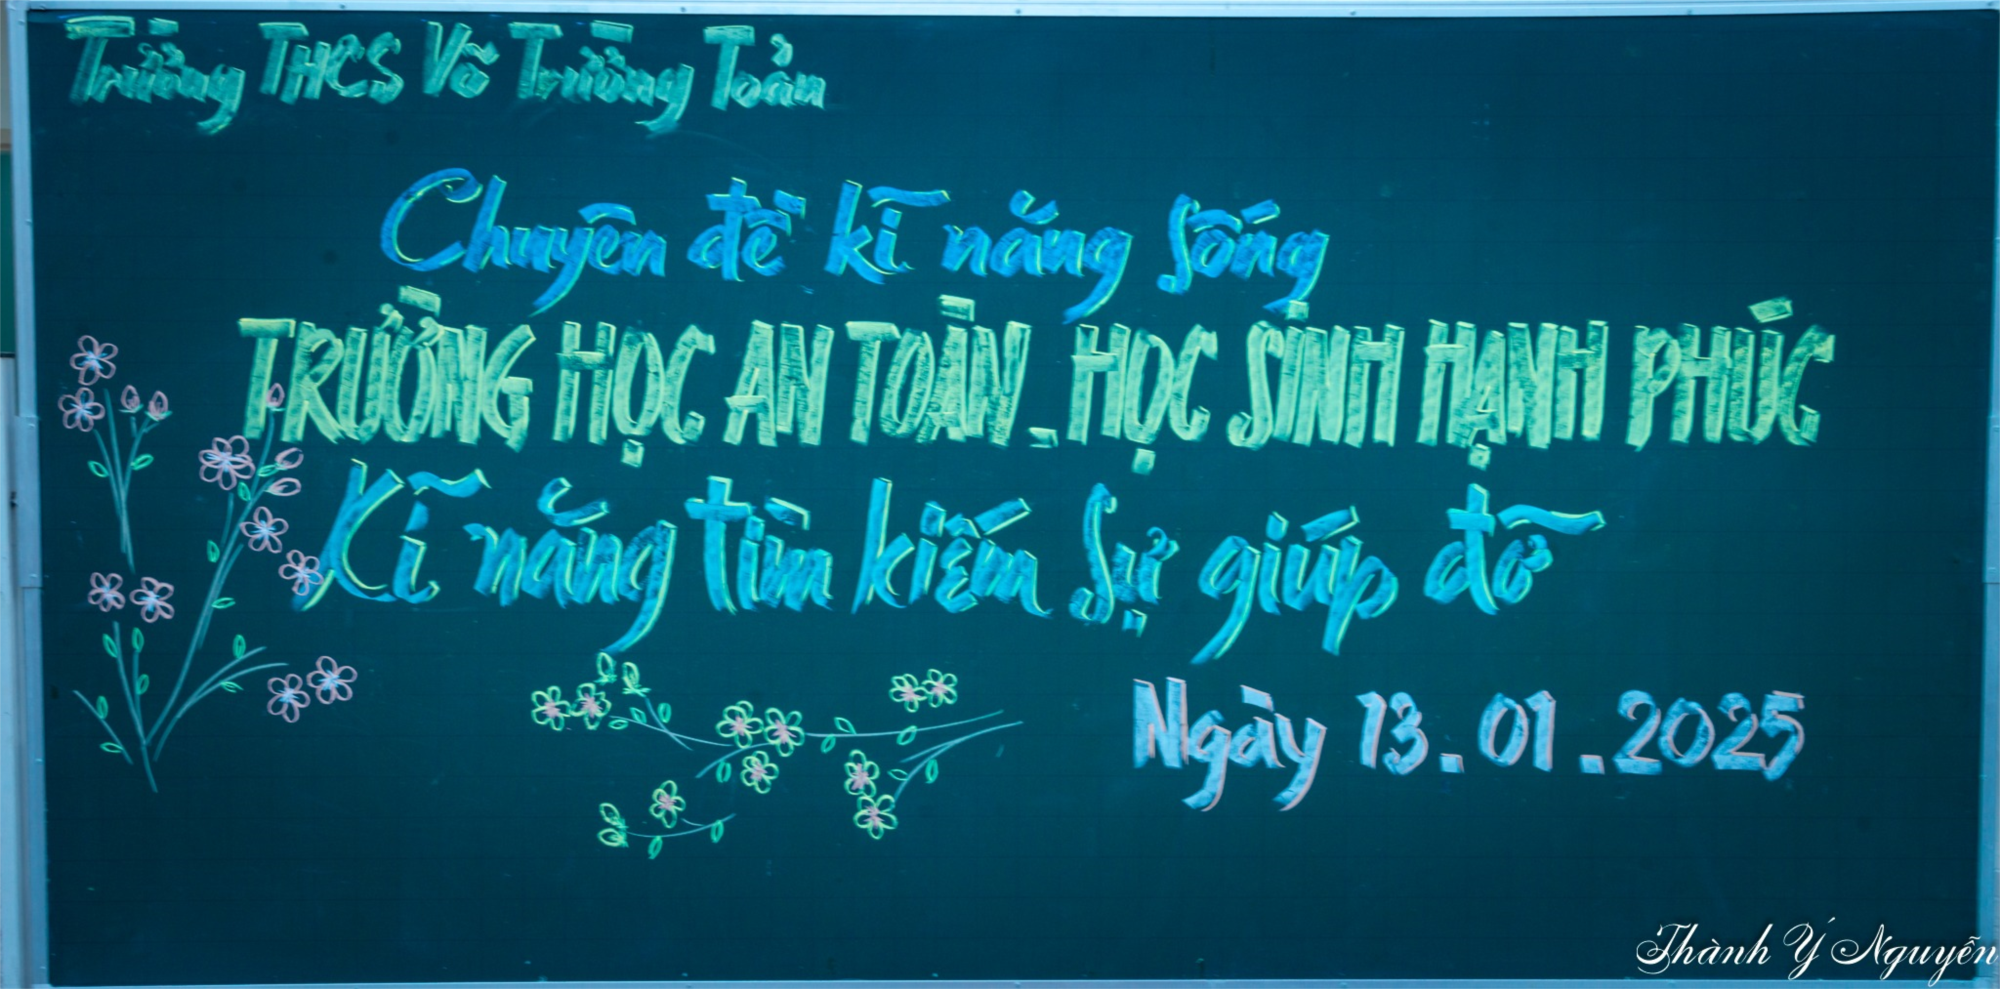 Trường THCS Võ Trường Toản
Chuyên đề kĩ năng sống
TRƯỜNG HỌC AN TOÀN - HỌC SINH HẠNH PHÚC
Kĩ năng tìm kiếm sự giúp đỡ
Ngày 13.01.2025
Thành Ý Nguyễn